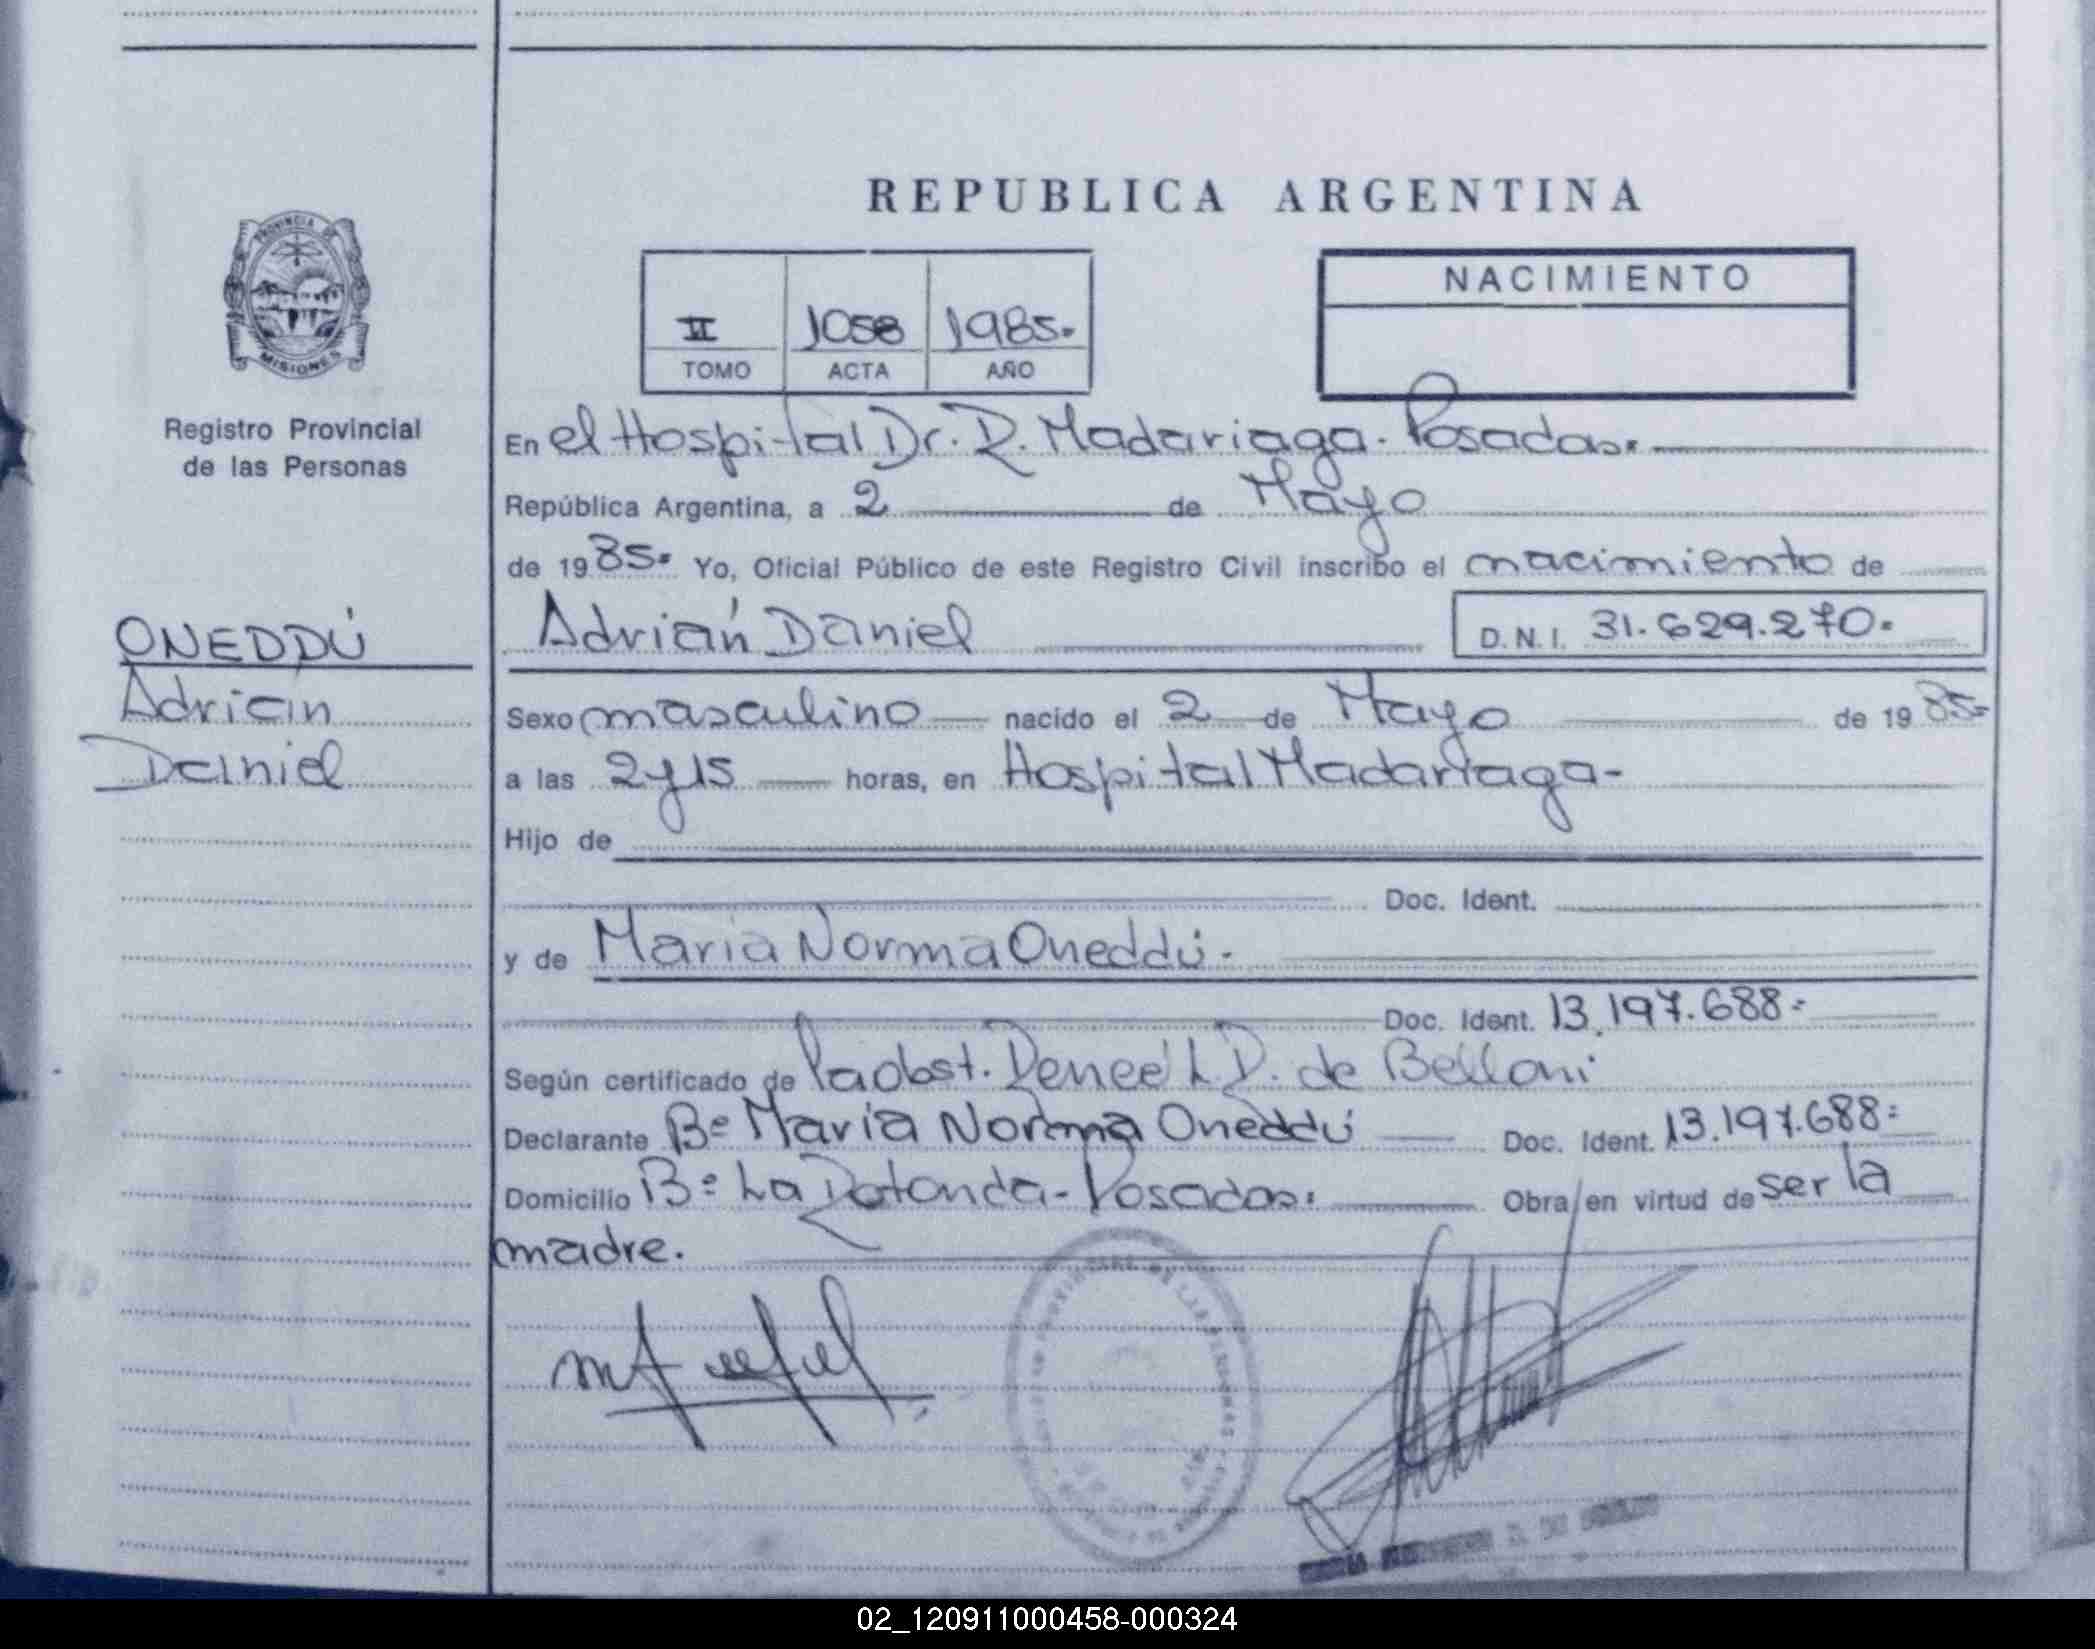 REPUBLICA ARGENTINA
PROVINCIA DE
MISIONES
Registro Provincial
de las Personas
II 1058 1985.
TOMO ACTA AÑO
NACIMIENTO
En el Hospital Dr. R. Madariaga. Posadas.
República Argentina, a 2 de Mayo
de 1985. Yo, Oficial Público de este Registro Civil inscribo el nacimiento de
ONEDDÚ
Adrián
Daniel
Adrián Daniel D.N.I. 31.629.270.
Sexo masculino nacido el 2 de Mayo de 1985
a las 2 y 15 horas, en Hospital Madariaga-
Hijo de
Doc. Ident.
y de Maria Norma Oneddú.
Doc. Ident. 13.197.688.
Según certificado de la obst. Renee L. D. de Belloni
Declarante Maria Norma Oneddú Doc. Ident. 13.197.688
Domicilio Bº La Rotonda- Posadas. Obra en virtud de ser la
madre.
02_120911000458-000324